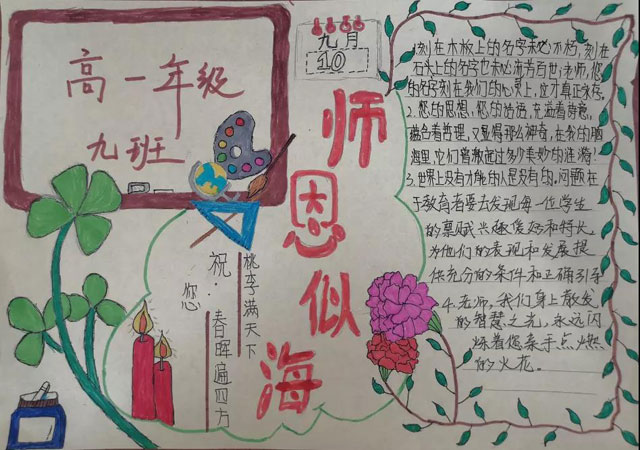 高一年级
九班
九月
10
师恩似海
祝·您
桃李满天下
春晖遍四方
刻在木板上的名字未必不朽,刻在
石头上的名字也未必流芳百世;老师,您
的名字刻在我们的心灵上,这才真正永存。
2.您的思想,您的话语,充溢着诗意,
蕴含着哲理,又显得那么神奇,在我的脑
海里,它们曾激起过多少美妙的涟漪!
3.世界上没有才能的人是没有的。问题在
于教育者要去发现每一位学生
的禀赋、兴趣、爱好和特长,
为他们的表现和发展提
供充分的条件和正确引导
4.老师,我们身上散发
的智慧之光,永远闪
烁着您亲手点燃
的火花。